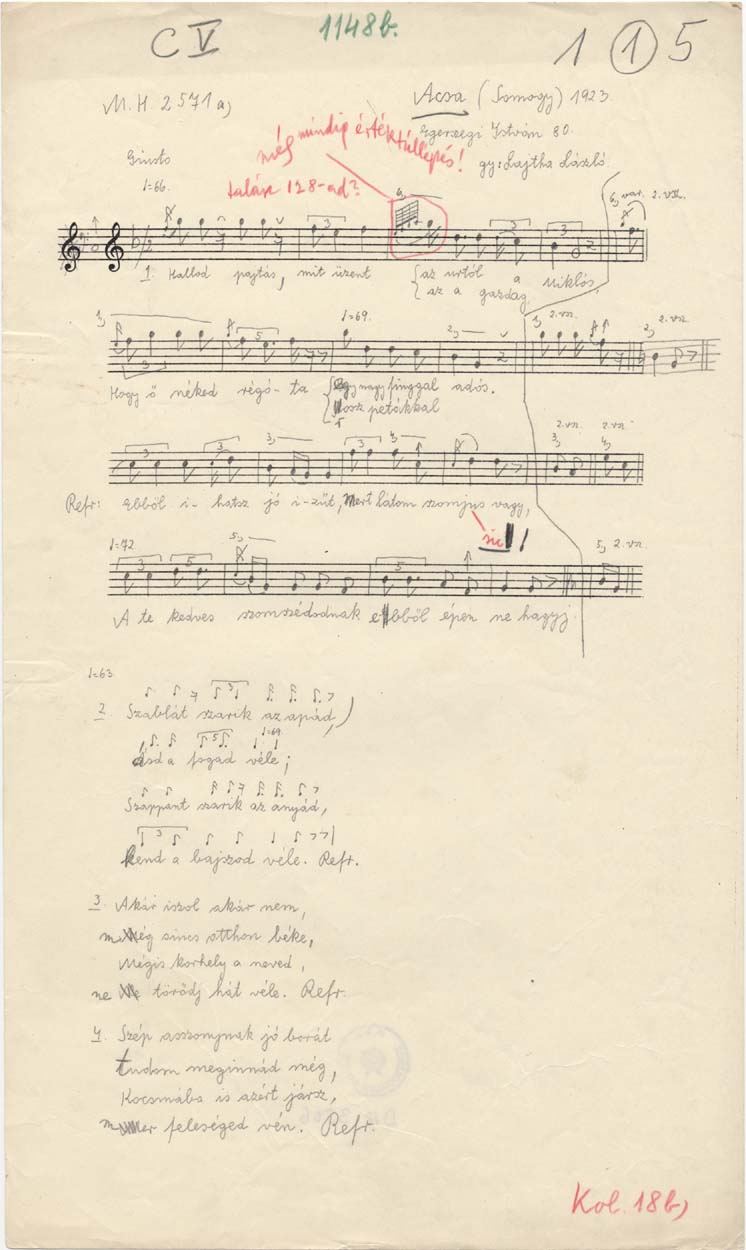 C V
1148b.
1 1 5
M. H. 2571a)
Acsa (Somogy) 1923.
Egerszegi István 80.
gy: Lajtha László
Giusto
♩=66.
még mindig értéktúllépés!
talán 128-ad?
6) var. 2. vsz.
1. Hallod pajtás, mit üzent { az urtól a Miklós,
az a gazdag
1)
5
♩=69.
2)
1) 2. vsz.
2) 2. vsz.
Hogy ő néked régó-ta { egy nagy finggal adós.
Rossz petákkal
3
3
3)
3
4)
2. vsz.
3)
2. vsz.
4)
Refr: Ebből i-hatsz jó i-zűt, mert látom szomjus vagy,
sic!
♩=72
3
5
5)
5
5) 2. vsz.
A te kedves szomszédodnak ebből épen ne hagyj.
♩=63
3
2. Szablát szarik az apád,
5
♩=69
ásd a fogad véle;
Szappant szarik az anyád,
3
kend a bajszod véle. Refr.
3. Akár iszol akár nem,
még sincs otthon béke,
Mégis korhely a neved,
ne törődj hát véle. Refr.
4. Szép asszonynak jó borát
tudom meginnád még,
Kocsmába is azért jársz,
mer feleséged vén. Refr.
Kol. 18b)